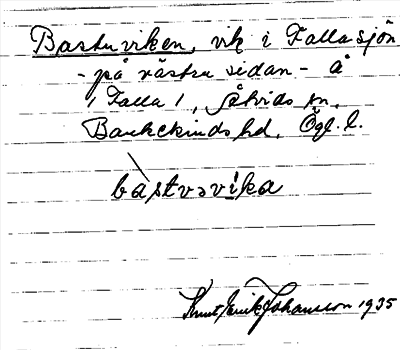 Bastuviken, vik i Fallasjön
- på västra sidan - å
1 Falla 1, Åtvids sn.
Bankekinds hd. Ögl. l.
bàstvəvi̇ka
Knut Erik Johansson 1935